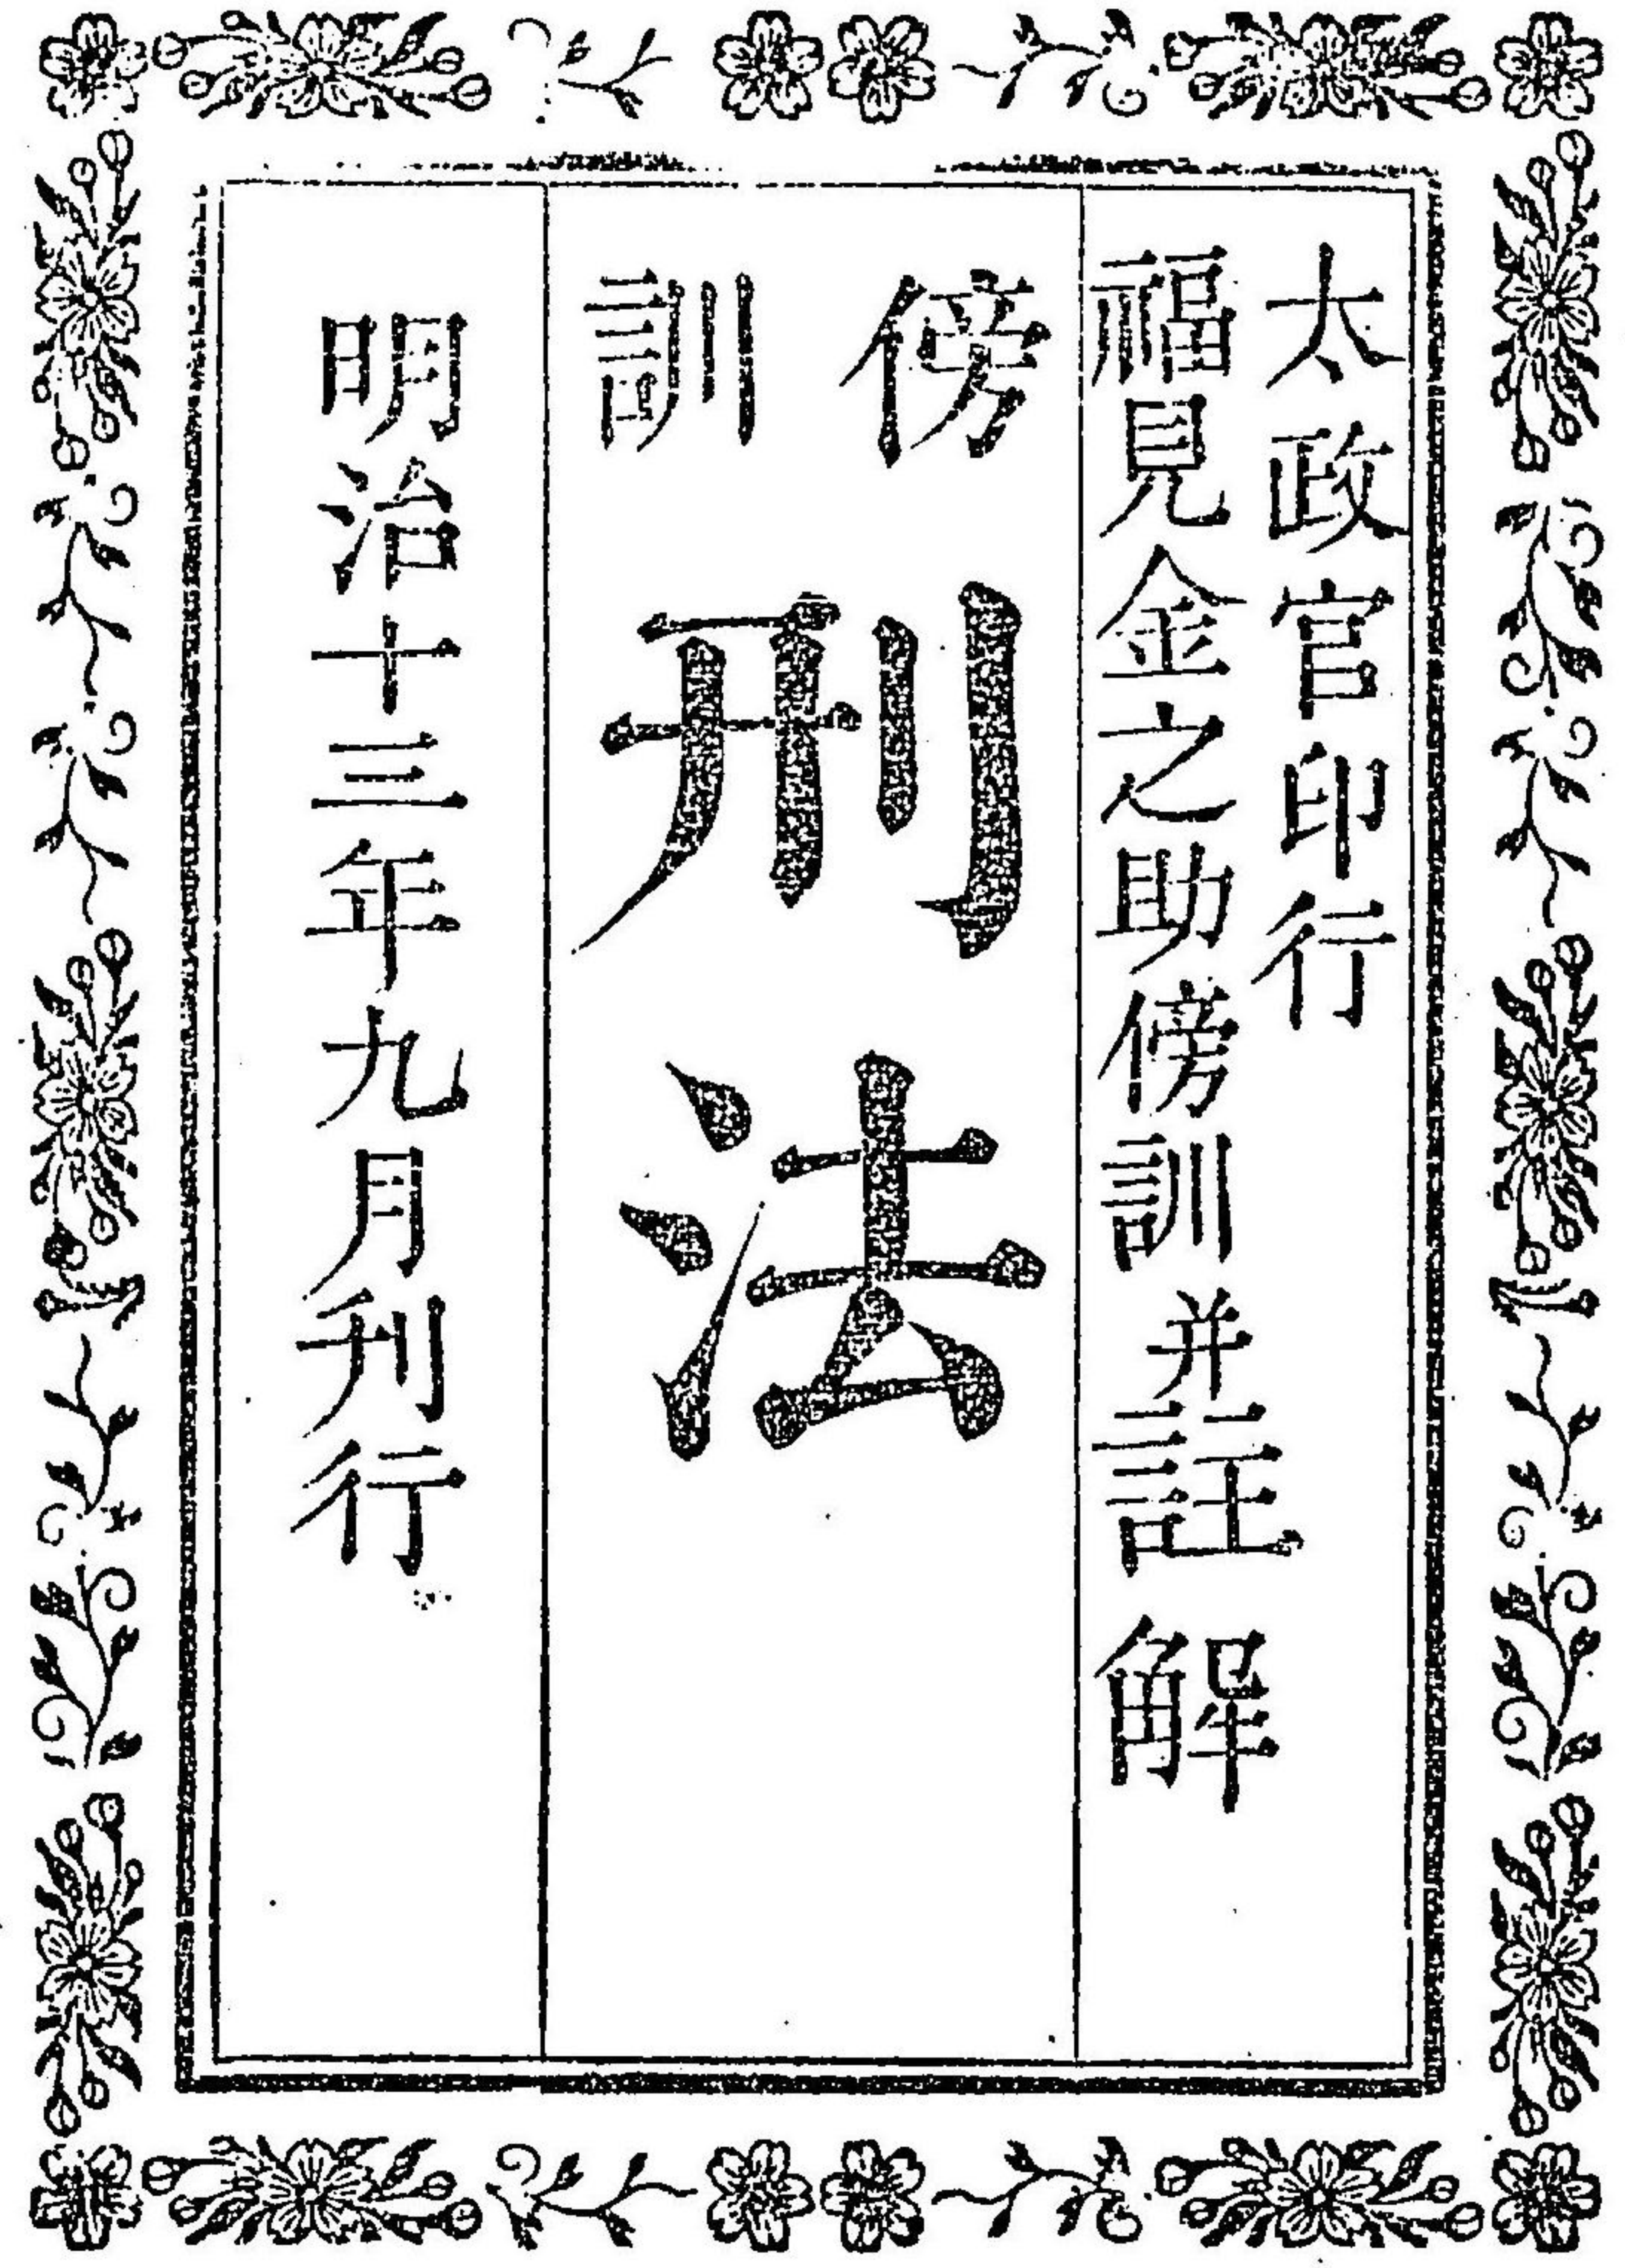 太政官印行
福見金之助傍訓并註解
傍訓
刑法
明治十三年九月刊行